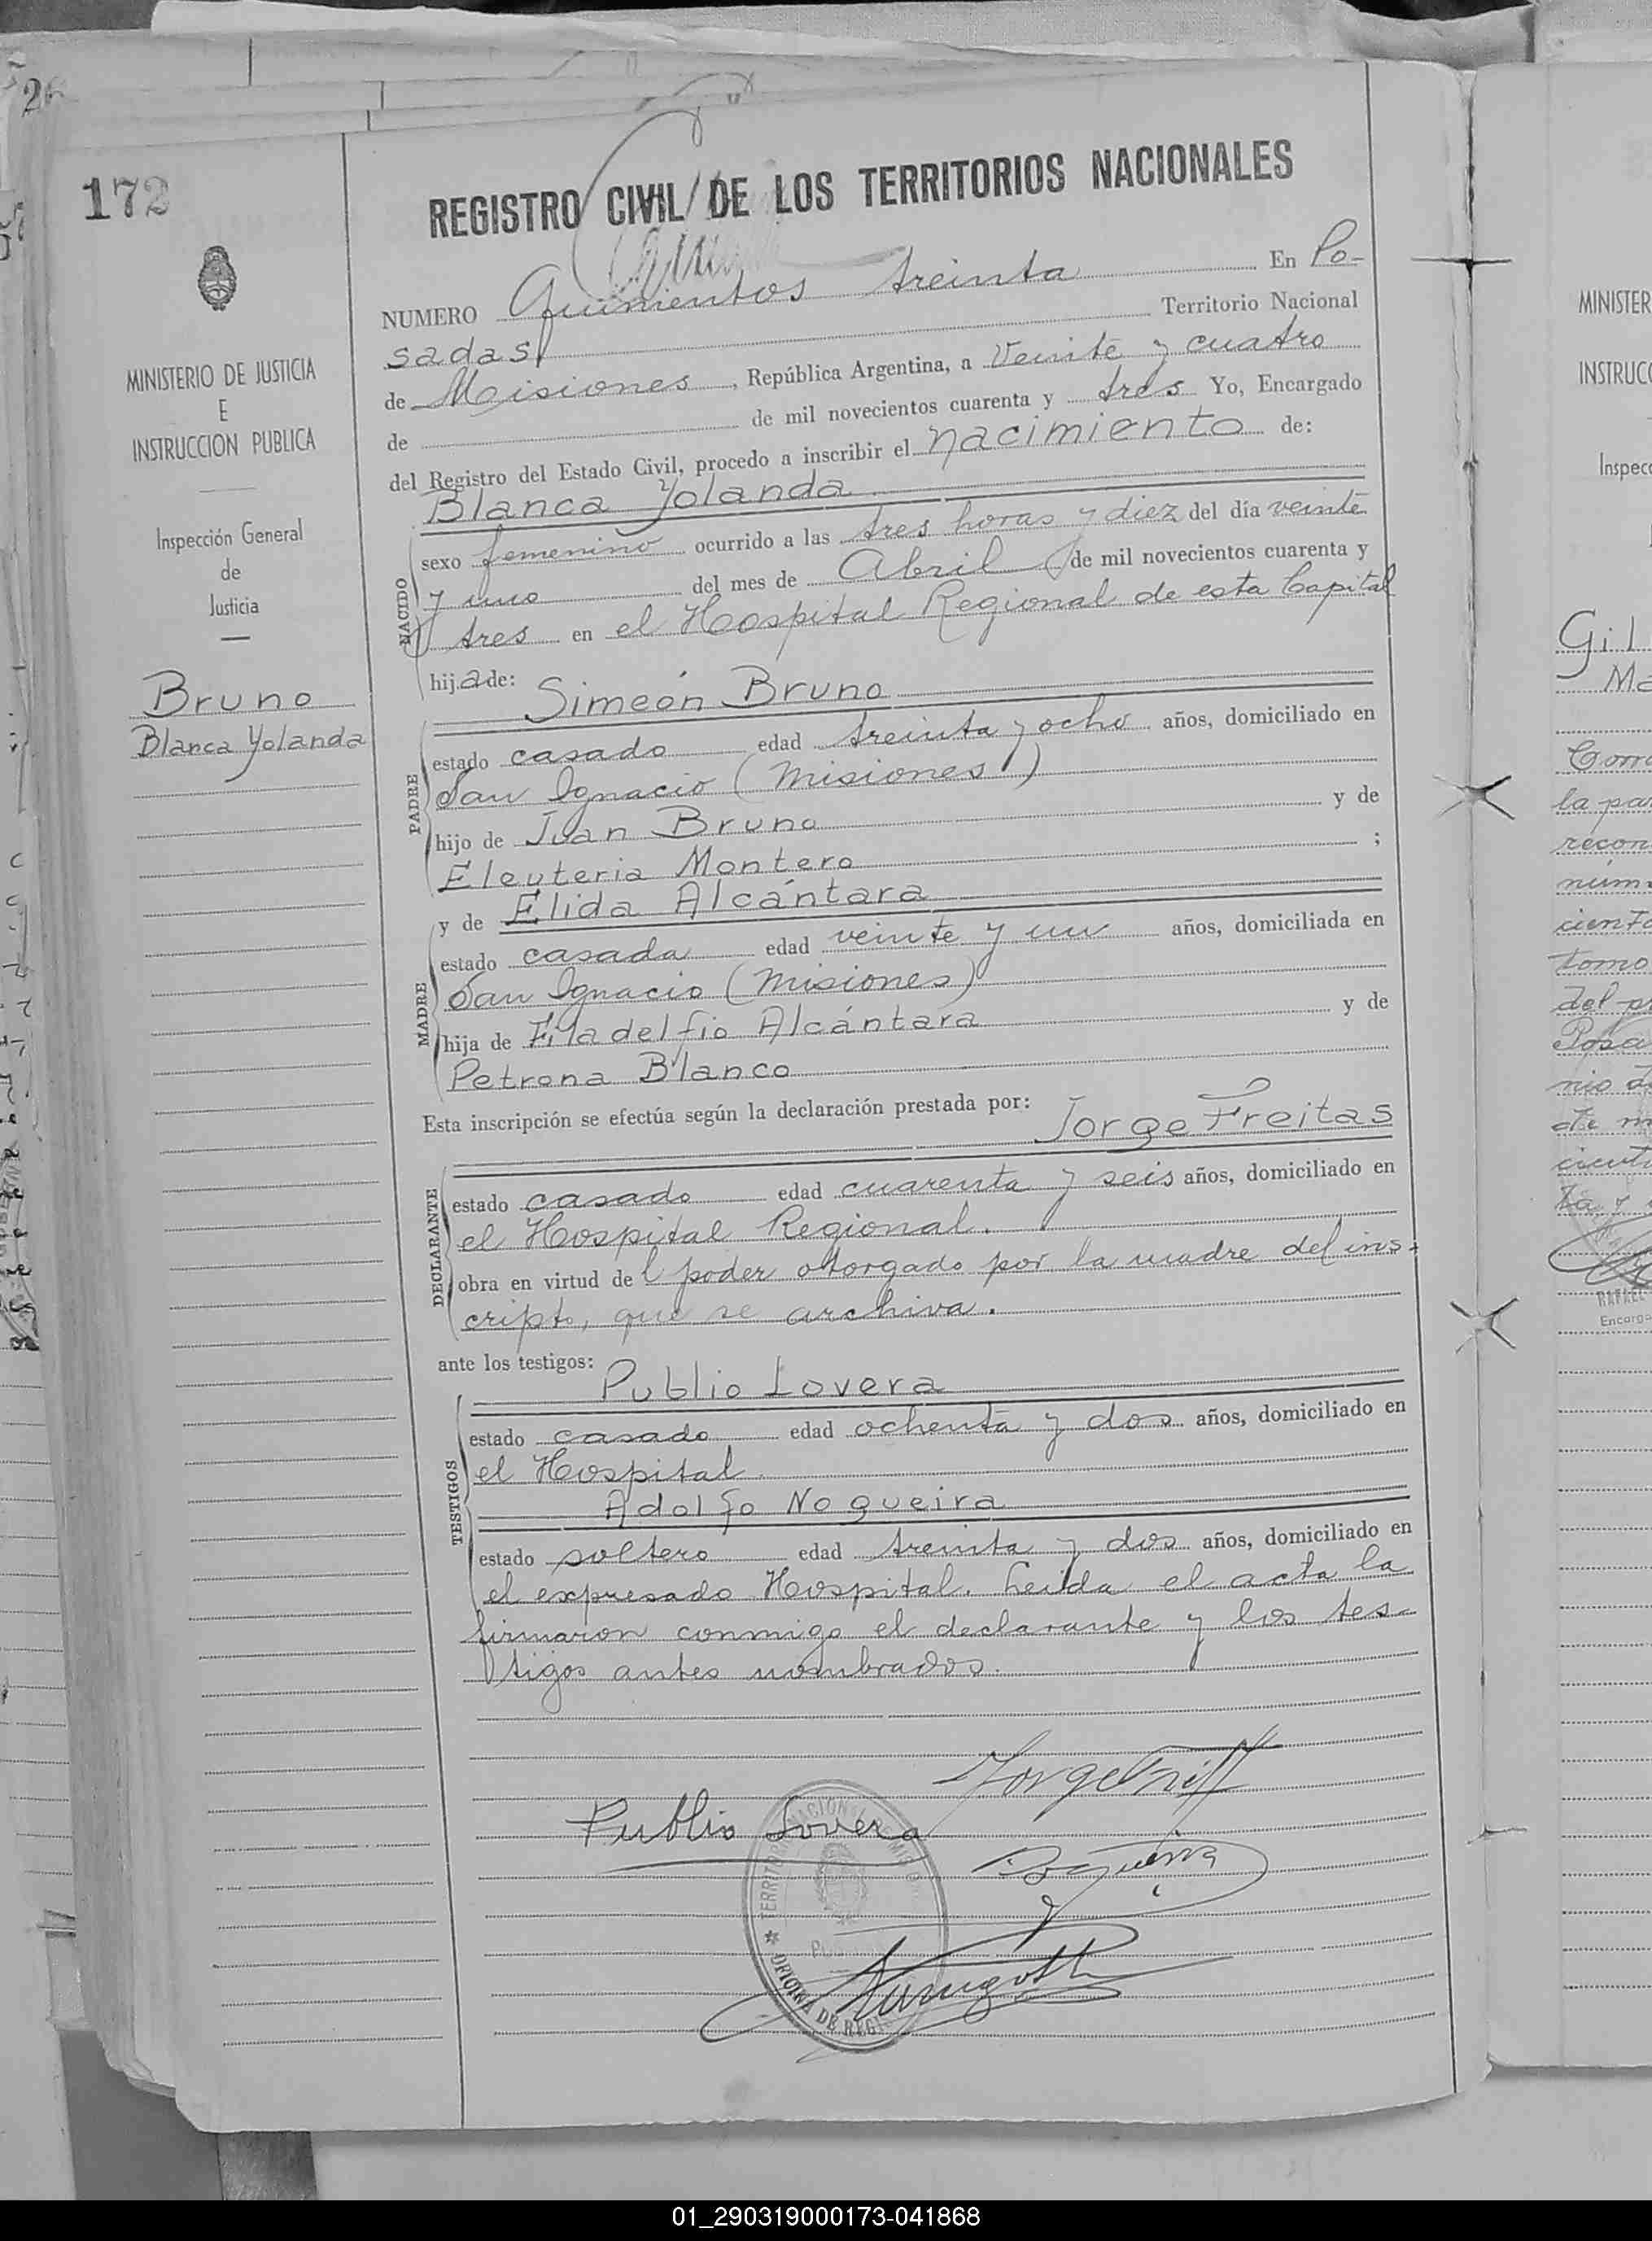 172
REGISTRO CIVIL DE LOS TERRITORIOS NACIONALES
MINISTERIO DE JUSTICIA
E
INSTRUCCION PUBLICA
Inspección General
de
Justicia
Bruno
Blanca Yolanda
NUMERO Quinientos treinta En Po-
sadas Territorio Nacional
de Misiones, República Argentina, a Veinte y cuatro
de de mil novecientos cuarenta y tres Yo, Encargado
del Registro del Estado Civil, procedo a inscribir el nacimiento de:
Blanca Yolanda
NACIDO
sexo femenino ocurrido a las tres horas y diez del día veinte
y uno del mes de Abril de mil novecientos cuarenta y
tres en el Hospital Regional de esta Capital
hija de: Simeón Bruno
PADRE
estado casado edad treinta y ocho años, domiciliado en
San Ignacio (Misiones)
hijo de Juan Bruno y de
Eleuteria Montero ;
y de Elida Alcántara
MADRE
estado casada edad veinte y un años, domiciliada en
San Ignacio (Misiones)
hija de Filadelfio Alcántara y de
Petrona Blanco
Esta inscripción se efectúa según la declaración prestada por: Jorge Freitas
DECLARANTE
estado casado edad cuarenta y seis años, domiciliado en
el Hospital Regional.
obra en virtud del poder otorgado por la madre del ins-
cripto, que se archiva.
ante los testigos: Publio Lovera
TESTIGOS
estado casado edad ochenta y dos años, domiciliado en
el Hospital
Adolfo Nogueira
estado soltero edad treinta y dos años, domiciliado en
el expresado Hospital. Leída el acta la
firmaron conmigo el declarante y los tes-
tigos antes nombrados.
Publio Lovera
OFICINA DE REGIS
MINISTER
INSTRUCC
Inspecc
Gil
Ma
la pa
recon
núm.
cient
tomo
del p
Posa
RAFAEL
Encarga
01_290319000173-041868